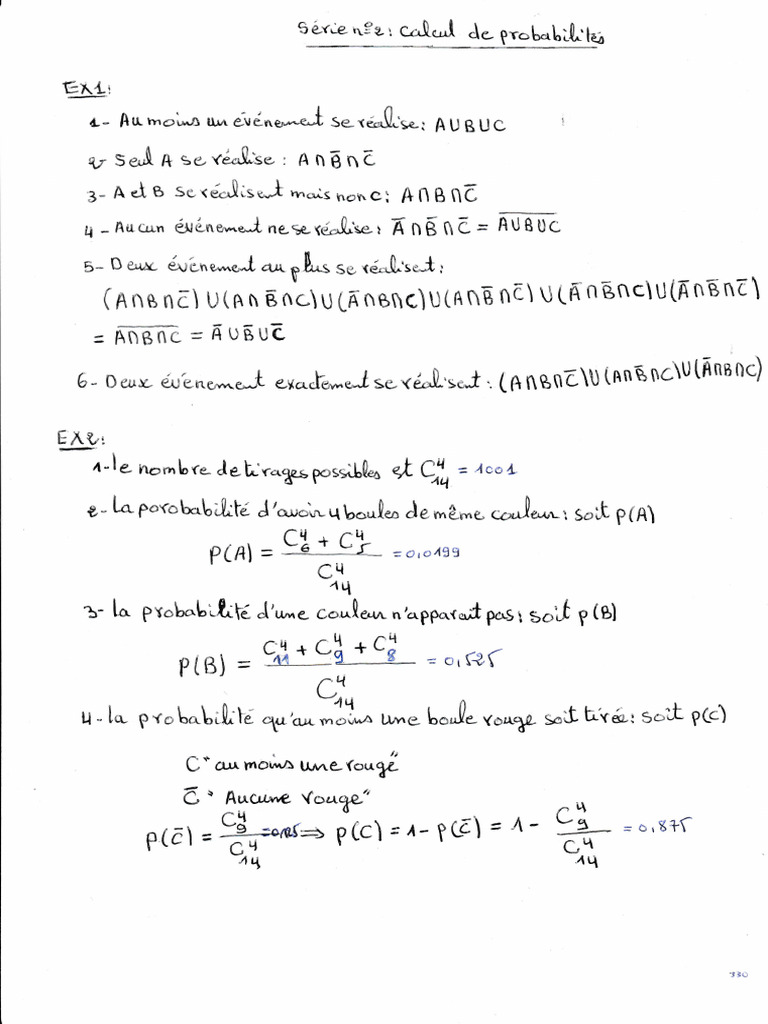 Série n°2: Calcul de probabilités
EX1:
1- Au moins un événement se réalise: A∪B∪C
2- Seul A se réalise : A∩B̅∩C̅
3- A et B se réalisent mais non C: A∩B∩C̅
4- Aucun événement ne se réalise: A̅∩B̅∩C̅ = \overline{A∪B∪C}
5- Deux événement au plus se réalisent:
(A∩B∩C̅)∪(A∩B̅∩C)∪(A̅∩B∩C)∪(A∩B̅∩C̅)∪(A̅∩B̅∩C)∪(A̅∩B̅∩C̅)
= \overline{A∩B∩C} = A̅∪B̅∪C̅
6- Deux événement exactement se réalisent : (A∩B∩C̅)∪(A∩B̅∩C)∪(A̅∩B∩C)
EX2:
1- le nombre de tirages possibles est C_{14}^4 = 1001
2- La porobabilité d'avoir 4 boules de même couleur: soit p(A)
P(A) = \frac{C_6^4 + C_5^4}{C_{14}^4} = 0,0199
3- la probabilité d'une couleur n'apparait pas: soit p(B)
P(B) = \frac{C_{11}^4 + C_9^4 + C_8^4}{C_{14}^4} = 0,525
4- la probabilité qu'au moins une boule rouge soit tirée: soit p(C)
C "au moins une rouge"
C̅ " Aucune rouge"
P(C̅) = \frac{C_9^4}{C_{14}^4} = 0,125 ⟹ p(C) = 1 - P(C̅) = 1 - \frac{C_9^4}{C_{14}^4} = 0,875
930